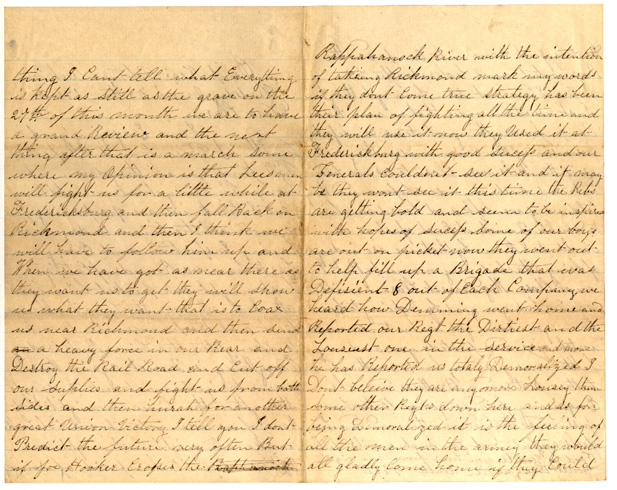 thing I Cant tell what Everything
is kept as still as the grave on the
27th of this month we are to have
a grand Review and the next
thing after that is a march some
where my Opinion is that Lees men
will fight us for a little while at
Fredericksburg and then fall Back on
Richmond and then I think we
will have to follow him up and
When we have got as near there as
they want us to get they will show
us what they want that is to Coax
us near Richmond and then send
a heavy force in our Rear and
Destroy the Rail Road and Cut off
our Suplies and fight us from both
sides and then hurah for another
great Union Victory I tell you I dont
Predict the future very often But
if Joe Hooker Croses the Raphanock
Rappahanock River with the intention
of takeing Richmond mark my words
if they dont Come true strategy has been
their plan of fighting all the time and
they will use it now they Used it at
Fredericksburg with good sucess and our
Generals Could not see it and it may
be they wont see it this time the Rebs
are getting bold and seem to be inspired
with hopes of sucess some of our boys
are out on picket now they went out
to help fill up a Brigade that was
Defisient 8 out of Each Company we
heard how Demming went home and
Reported our Regt the Dirtiest and the
Lousiest one in the service and now
he has Reported us totaly Demoralized I
Dont beleive they are any more Lousey than
some other Regts down here and as for
being Demoralized it is the feeling of
all the men in the army they would
all gladly Come home if they Could